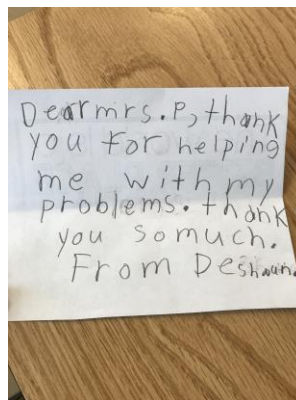 Dear mrs. P, thank
you for helping
me with my
problems. thank
you somuch.
From Deshaun.